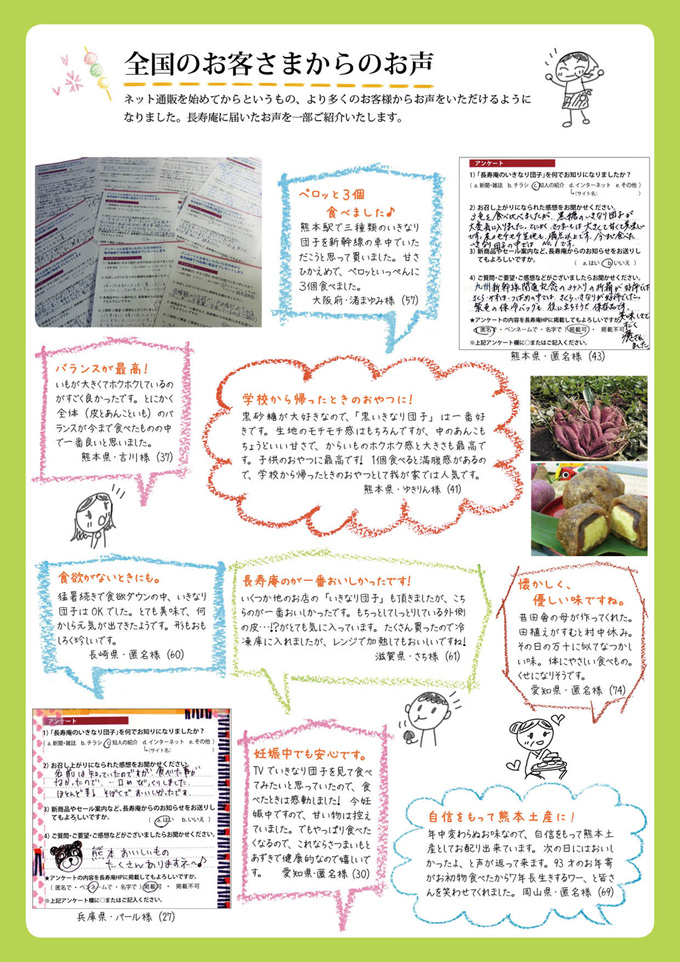 全国のお客さまからのお声
ネット通販を始めてからというもの、より多くのお客様からお声をいただけるように
なりました。長寿庵に届いたお声を一部ご紹介いたします。
ペロッと3個
食べました♪
熊本駅で三種類のいきなり
団子を新幹線の車中でいた
だこうと思って買いました。甘さ
ひかえめで、ペロッといっぺんに
3個食べました。
大阪府・渚まゆみ様（57）
アンケート
1)「長寿庵のいきなり団子」を何でお知りになりましたか？
( a. 新聞・雑誌 b. チラシ c. 知人の紹介 d. インターネット e. その他 )
└(サイト名: )
2) お召し上がりになられた感想をお聞かせください。
3) 新商品やセール案内など、長寿庵からのお知らせをお送り
してもよろしいですか。 ( a. はい b. いいえ )
4) ご質問・ご要望・ご感想などがございましたらお聞かせください。
★アンケートの内容を長寿庵HPに掲載してもよろしいですか？
( 匿名で ・ ペンネームで ・ 名字で ( 掲載可 ・ 掲載不可
※上記アンケート欄に○またはご記入ください。
熊本県・匿名様（43）
バランスが最高！
いもが大きくてホクホクしているの
がすごく良かったです。とにかく
全体（皮とあんこといも）のバ
ランスが今まで食べたものの中
で一番良いと思いました。
熊本県・古川様（37）
学校から帰ったときのおやつに！
黒砂糖が大好きなので、「黒いきなり団子」は一番好
きです。生地のモチモチ感はもちろんですが、中のあんこも
ちょうどいい甘さで、からいものホクホク感と大きさも最高で
す。子供のおやつに最高です！1個食べると満腹感があるの
で、学校から帰ったときのおやつとして我が家では人気です。
熊本県・ゆきりん様（41）
食欲がないときにも。
猛暑続きで食欲ダウンの中、いきなり
団子はOKでした。とても美味で、何
かしら元気が出てきたようです。形もおも
しろく珍しいです。
長崎県・匿名様（60）
長寿庵のが一番おいしかったです！
いくつか他のお店の「いきなり団子」も頂きましたが、こち
らのが一番おいしかったです。もちっとしてしっとりしている外側
の皮…!?がとても気に入っています。たくさん買ったので冷
凍庫に入れましたが、レンジで加熱してもおいしいですね！
滋賀県・さち様（61）
懐かしく、
優しい味ですね。
昔田舎の母が作ってくれた。
田植えがすむと村中休み。
その日の万十に似てなつかし
い味。体にやさしい食べもの。
くせになりそうです。
愛知県・匿名様（74）
アンケート
1)「長寿庵のいきなり団子」を何でお知りになりましたか？
( a. 新聞・雑誌 b. チラシ c. 知人の紹介 d. インターネット e. その他 )
└(サイト名: )
2) お召し上がりになられた感想をお聞かせください。
名前は知っていたのですが、食べた事が
なかったので、一口めびっくりしました
3) 新商品やセール案内など、長寿庵からのお知らせをお送りし
てもよろしいですか。 ( a. はい b. いいえ )
4) ご質問・ご要望・ご感想などがございましたらお聞かせください。
熊本おいしいもの
たくさんありますネ♪
★アンケートの内容を長寿庵HPに掲載してもよろしいですか？
( 匿名で ・ ペンネームで ・ 名字で ( 掲載可 ・ 掲載不可
※上記アンケート欄に○またはご記入ください。
兵庫県・パール様（27）
妊娠中でも安心です。
TVでいきなり団子を見て食べ
てみたいと思っていたので、食
べたときは感動しました！今妊
娠中ですので、甘い物は控え
ていました。でもやっぱり食べた
くなるので、これならさつまいもと
あずきで健康的なので嬉しいで
す。 愛知県・匿名様（30）
自信をもって熊本土産に！
年中変わらぬお味なので、自信をもって熊本土
産としてお配り出来ています。次の日にはおいし
かったよ、と声が返って来ます。93才のお年寄
がお初物食べたから7年長生きするワー、と皆さ
んを笑わせてくれました。周山県・匿名様（69）